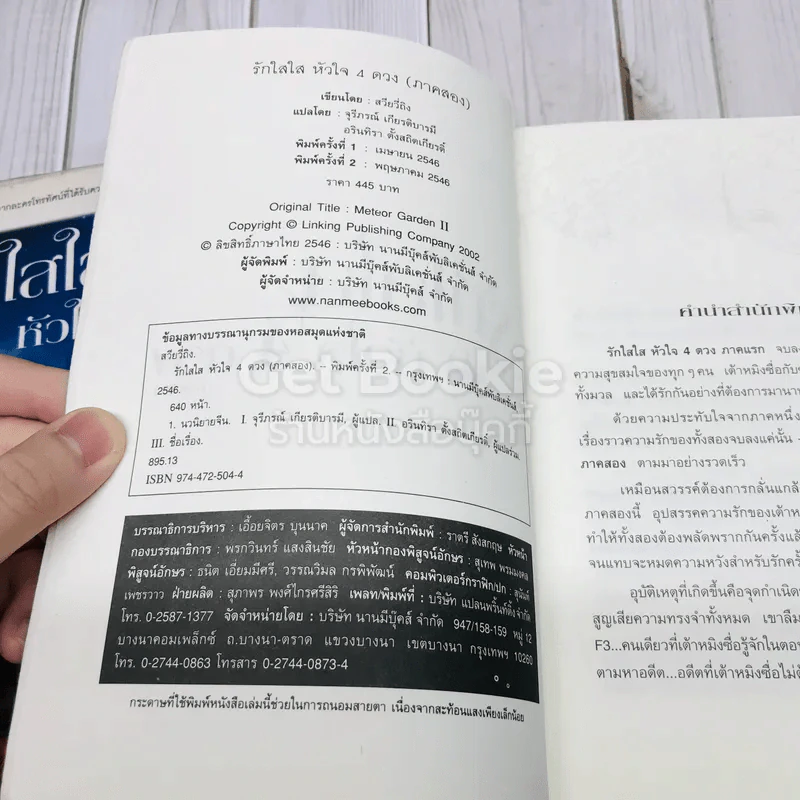 รักใสใส หัวใจ 4 ดวง (ภาคสอง)
เขียนโดย : สวียวี่ถิง
แปลโดย : จุรีภรณ์ เกียรติบารมี
อรินทิรา ตั้งสถิตเกียรติ์
พิมพ์ครั้งที่ 1 : เมษายน 2546
พิมพ์ครั้งที่ 2 : พฤษภาคม 2546
ราคา 445 บาท
Original Title : Meteor Garden II
Copyright © Linking Publishing Company 2002
© ลิขสิทธิ์ภาษาไทย 2546 : บริษัท นานมีบุ๊คส์พับลิเคชั่นส์ จำกัด
ผู้จัดพิมพ์ : บริษัท นานมีบุ๊คส์พับลิเคชั่นส์ จำกัด
ผู้จัดจำหน่าย : บริษัท นานมีบุ๊คส์ จำกัด
www.nanmeebooks.com
ข้อมูลทางบรรณานุกรมของหอสมุดแห่งชาติ
สวียวี่ถิง.
รักใสใส หัวใจ 4 ดวง (ภาคสอง). -- พิมพ์ครั้งที่ 2. -- กรุงเทพฯ : นานมีบุ๊คส์พับลิเคชั่นส์
2546.
640 หน้า.
1. นวนิยายจีน. I. จุรีภรณ์ เกียรติบารมี, ผู้แปล. II. อรินทิรา ตั้งสถิตเกียรติ์, ผู้แปลร่วม.
III. ชื่อเรื่อง.
895.13
ISBN 974-472-504-4
บรรณาธิการบริหาร : เอื้อยจิตร บุนนาค ผู้จัดการสำนักพิมพ์ : ราตรี สังสกฤษ หัวหน้า
กองบรรณาธิการ : พรกวินทร์ แสงสินชัย หัวหน้ากองพิสูจน์อักษร : สุเทพ พรมมงคล
พิสูจน์อักษร : ธนิต เอี่ยมมีศรี, วรรณวิมล กรพิพัฒน์ คอมพิวเตอร์กราฟิก/ปก : สุนันท์
เพชรวาว ฝ่ายผลิต : สุภาพร พงศ์ไกรศรีสิริ เพลท/พิมพ์ที่ : บริษัท แปลนพริ้นท์ติ้ง จำกัด
โทร. 0-2587-1377 จัดจำหน่ายโดย : บริษัท นานมีบุ๊คส์ จำกัด 947/158-159 หมู่ 12
บางนาคอมเพล็กซ์ ถ.บางนา-ตราด แขวงบางนา เขตบางนา กรุงเทพฯ 10260
โทร. 0-2744-0863 โทรสาร 0-2744-0873-4
กระดาษที่ใช้พิมพ์หนังสือเล่มนี้ช่วยในการถนอมสายตา เนื่องจากสะท้อนแสงเพียงเล็กน้อย
คำนำสำนักพิ
รักใสใส หัวใจ 4 ดวง ภาคแรก จบลง
ความสุขสมใจของทุก ๆ คน เต้าหมิงซื่อกับ
ทั้งมวล และได้รักกันอย่างที่ต้องการมานาน
ด้วยความประทับใจจากภาคหนึ่ง
เรื่องราวความรักของทั้งสองจบลงแค่นั้น
ภาคสอง ตามมาอย่างรวดเร็ว
เหมือนสวรรค์ต้องการกลั่นแกล้
ภาคสองนี้ อุปสรรคความรักของเต้าห
ทำให้ทั้งสองต้องพลัดพรากกันครั้งแล้
จนแทบจะหมดความหวังสำหรับรักครั้
อุบัติเหตุที่เกิดขึ้นคือจุดกำเนิด
สูญเสียความทรงจำทั้งหมด เขาลืม
F3...คนเดียวที่เต้าหมิงซื่อรู้จักในตอน
ตามหาอดีต...อดีตที่เต้าหมิงซื่อไม่
ากละครโทรทัศน์ที่ได้รับคว
ใสใส
หัวใ
Get Bookie
ร้านหนังสือบุ๊คกี้